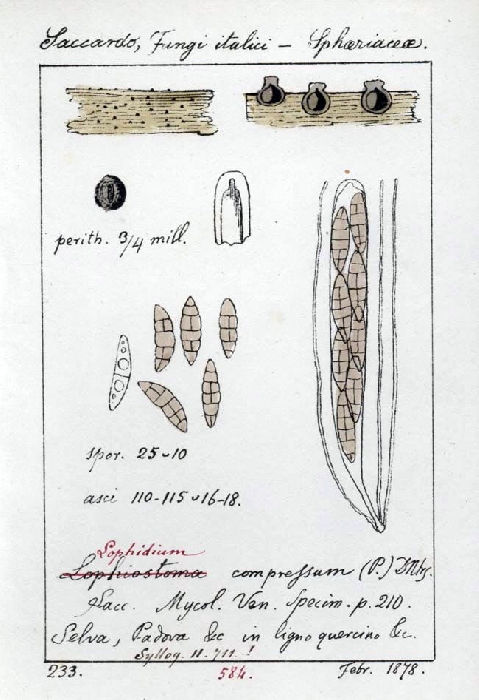 Saccardo, Fungi italici — Sphæriaceæ.
perith. 3/4 mill.
spor. 25⌣10
asci 110-115⌣16-18.
Lophidium
Lophiostoma compressum (P.) DNtrs.
Sacc. Mycol. Ven. Specim. p. 210.
Selva, Padova &c in ligno quercino &c.
Syllog. II. 711. !
233. 584. Febr. 1878.